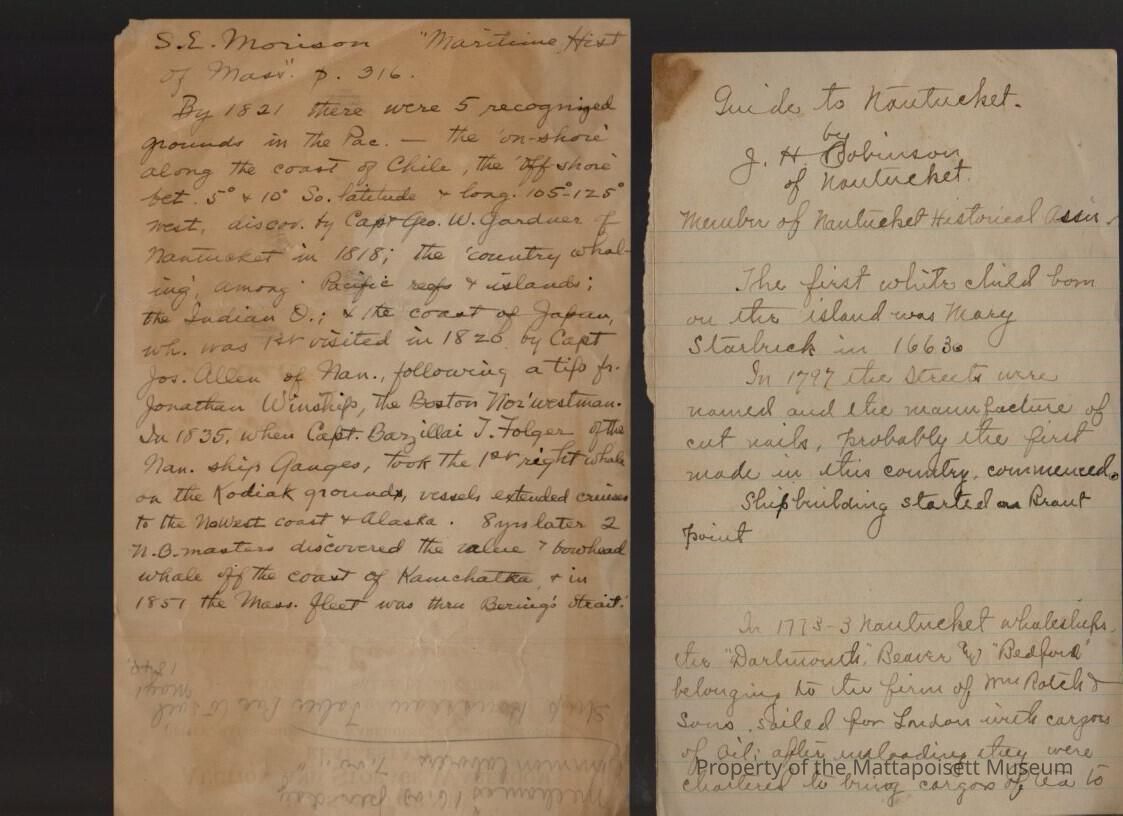 S.E. Morison "Maritime Hist
of Mass". p. 316.
"By 1821 there were 5 recognized
grounds in the Pac. — the 'on-shore'
along the coast of Chile, the 'off shore'
bet. 5° & 10° So. latitude & long. 105°-125°
west, discov. by Capt Geo. W. Gardner of
Nantucket in 1818; the 'country whal-
ing', among Pacific reefs & islands;
the Indian O.; & the coast of Japan,
wh. was 1st visited in 1820 by Capt
Jos. Allen of Nan., following a tip fr.
Jonathan Winship, the Boston Nor'westman.
In 1835, when Capt. Barzillai T. Folger of the
Nan. ship Ganges, took the 1st right whale
on the Kodiak grounds, vessels extended cruises
to the NoWest coast & Alaska. 8 yrs later 2
N.B. masters discovered the value of bowhead
whale off the coast of Kamchatka, & in
1851 the Mass. fleet was thru Bering's strait."
Ship Rousseau
Common laborer
Mechanics
Guide to Nantucket.
by
J. H. Robinson
of Nantucket.
Member of Nantucket Historical Assin.
The first white child born
on the island was Mary
Starbuck in 1663
In 1797 the streets were
named and the manufacture of
cut nails, probably the first
made in this country, commenced.
Shipbuilding started on Brant
point
In 1773-3 Nantucket whaleships,
the "Dartmouth", Beaver & "Bedford"
belonging to the firm of Wm Rotch &
Sons, sailed for London with cargoes
of oil; after unloading they were
chartered to bring cargoes of tea to
Property of the Mattapoisett Museum